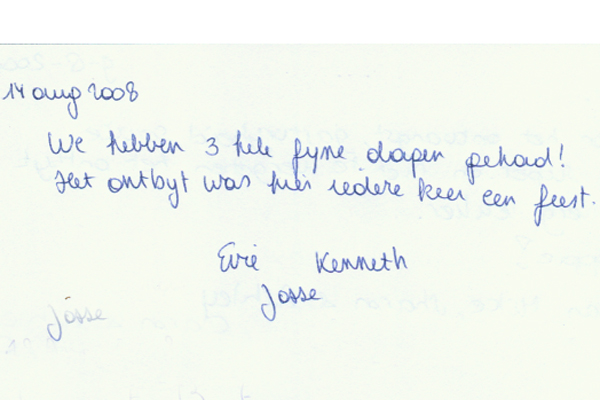 14 aug 2008
We hebben 3 hele fyne dagen gehad!
Het ontbyt was hier iedere keer een feest.
Evie Kenneth
Josse
josse